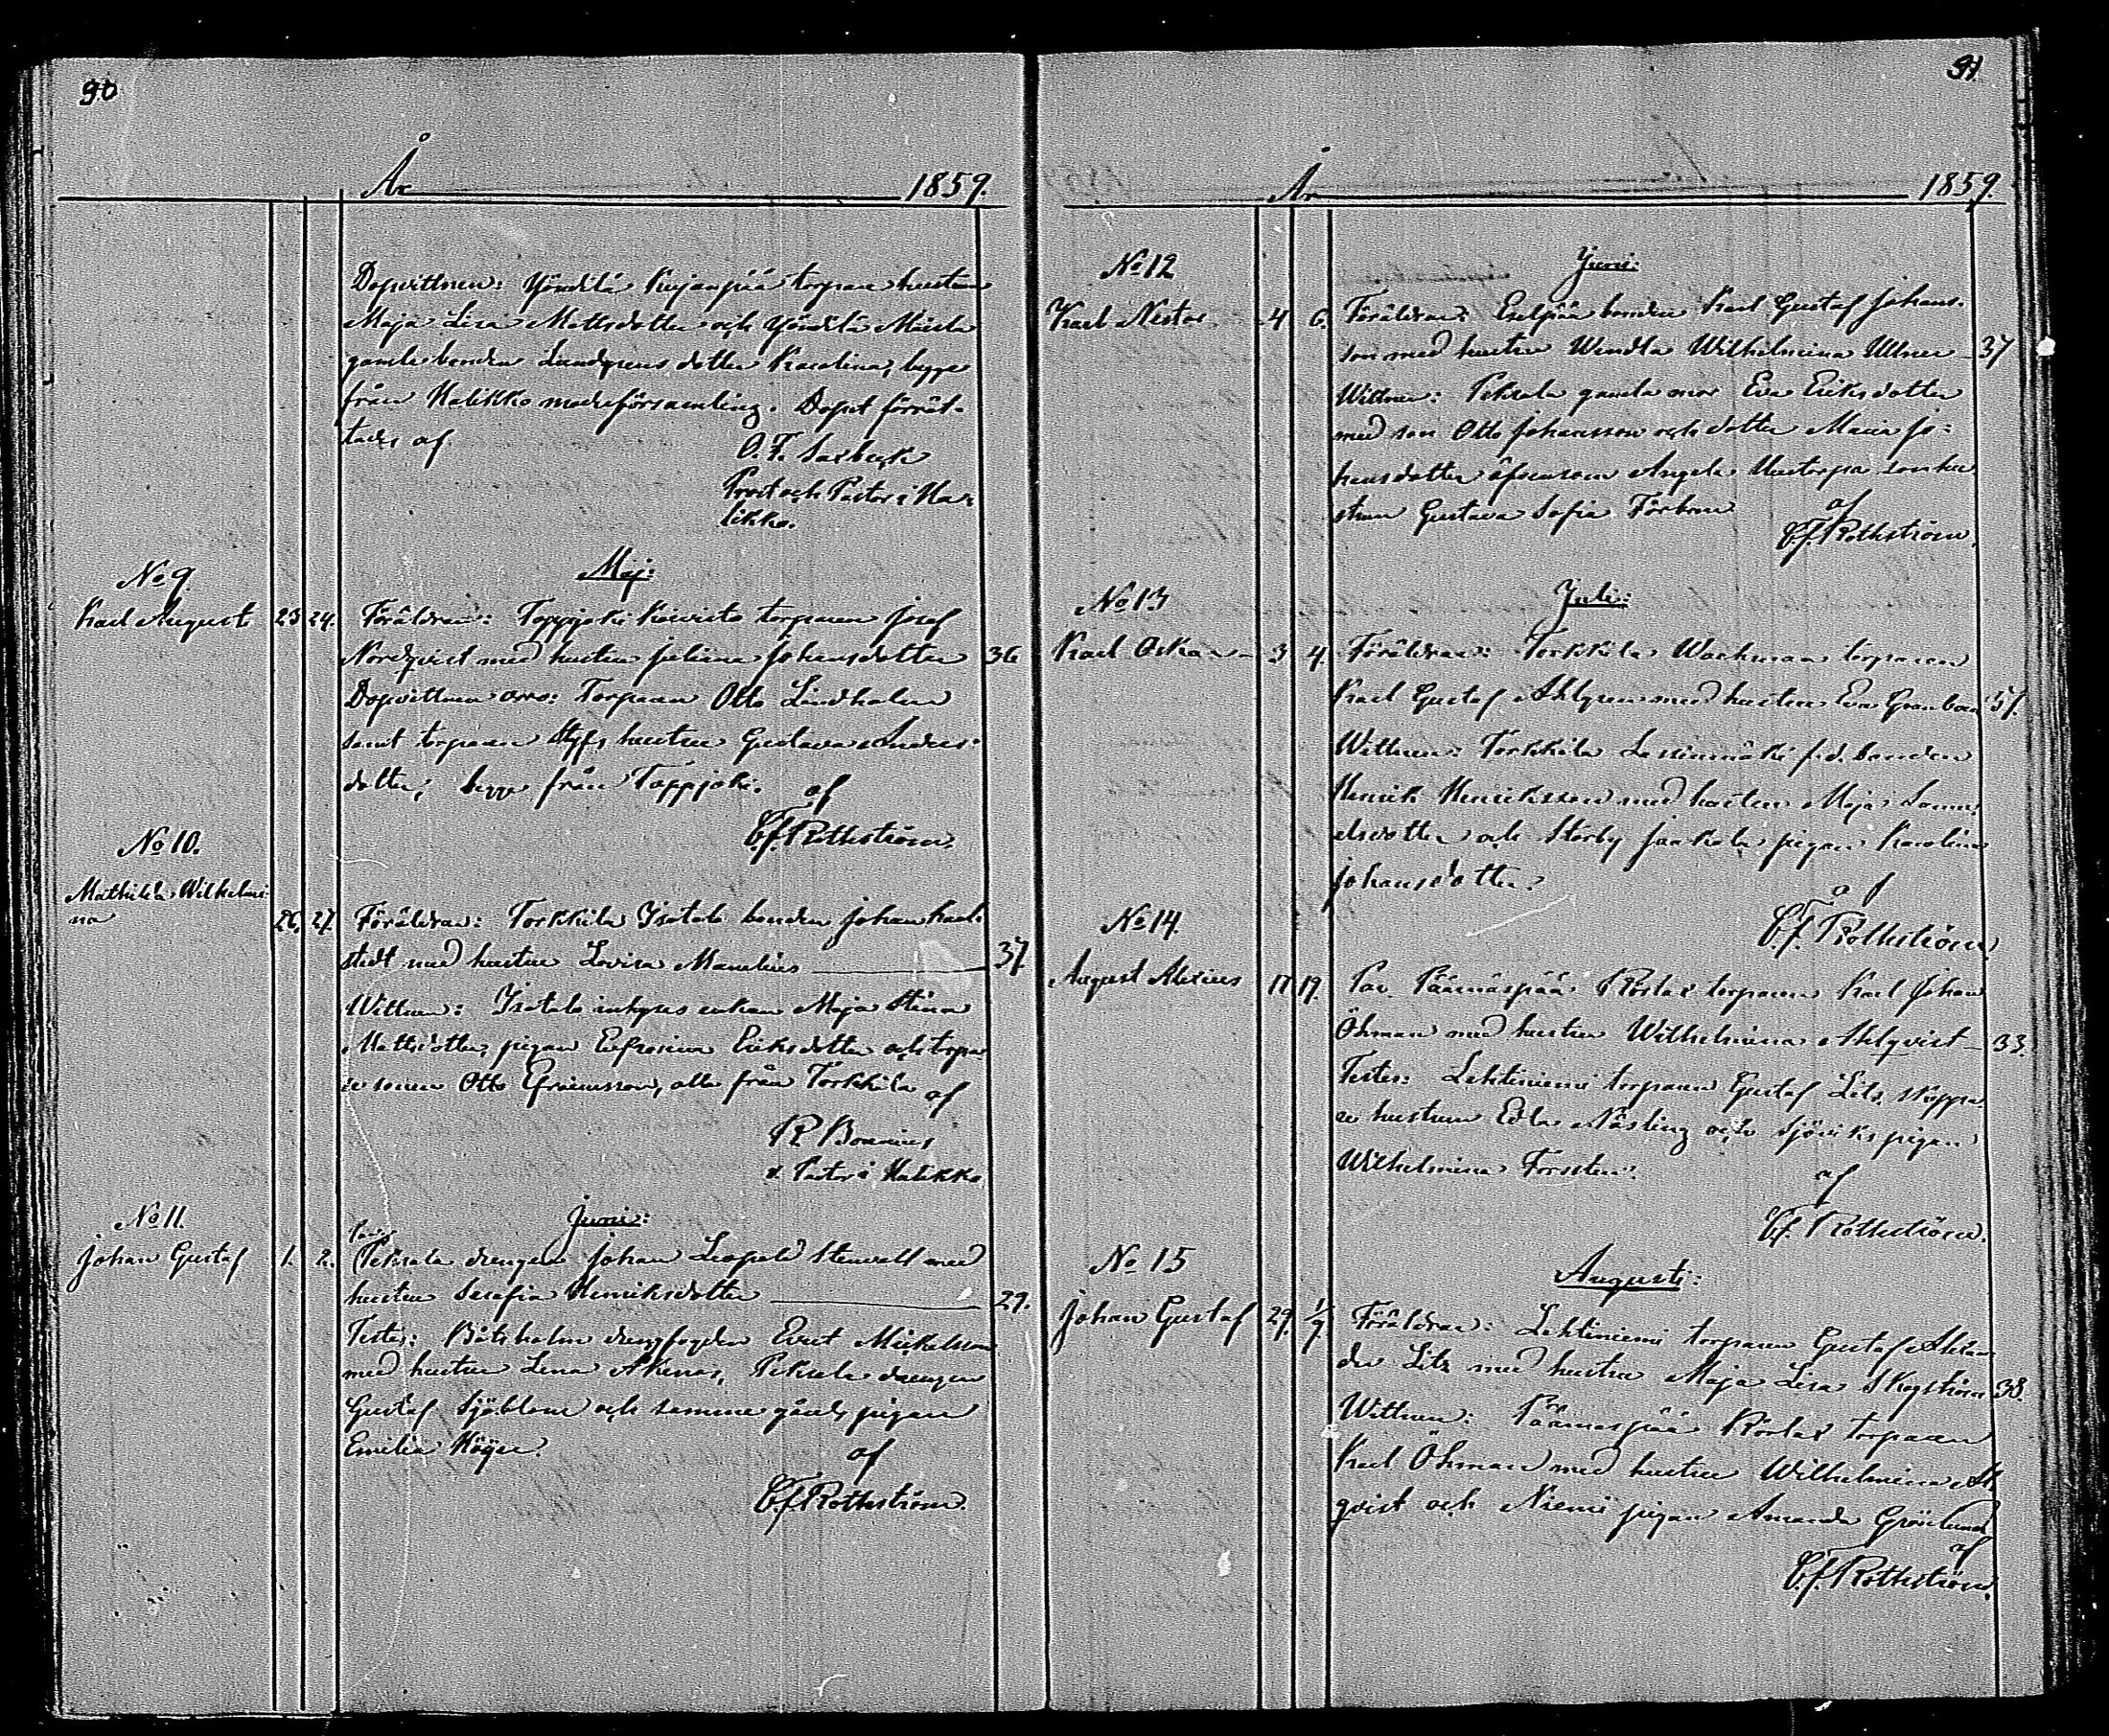 90
År 1859.
Dopvittnen: Yöndilä Kujanpää torpare hustrun
Maja Lisa Mattsdotter och Yöndilä
gamle bonden Lundgrens dotter Karolina, begge
från Halikko moderförsamling. Dopet förrät-
tades af
O. F.
Prost och Pastor i Ha-
likko.
Maj:
No 9.
Karl August 23 24. Föräldrar: Toppjoki Koivisto torparen Josef
Nordqvist med hustru Juliana Johansdotter 36
Dopvittnen voro: Torparen Otto Lindholm
samt torparen hustru Gustava Anders-
dotter, begge från Toppjoki. af
C. J. Rothström.
No 10.
Mathilda Wilhelmi-
na 26. 27. Föräldrar: Torkkila Isotalo bonden Johan Karl-
stedt med hustru Lovisa Manelius 37
Wittnen: Isotalo inhyses enkan Maja Stina
Mattsdotter, pigan Eufrosina Eriksdotter och torpa-
re sonen Otto Efraimsson, alla från Torkkila af
Bonnius
v. Pastor i Halikko
Junii:
No 11.
Johan Gustaf 1. 2. Peksala drengen Johan Leopold Stenvall med
hustru Serafia Henriksdotter 29.
Testes: Båtsholm drengfogden Evert Mickelsson
med hustru Lena Akenas, Peksala drengen
Gustaf Sjöblom och samma gårds pigan
Emilia Höijer. af
C. J. Rothström.
91
År 1859.
Junii:
No 12
Karl Nestor 4 6. Föräldrar: bonden Karl Gustaf Johans-
son med hustru Wendla Wilhelmina Ulner 37
Wittnen: Peksala gamla mor Eva Eriksdotter
med son Otto Johansson och dotter Maria Jo-
hansdotter äfvensom Angela sonhu-
strun Gustava Sofia Förbom af
C. J. Rothström.
Juli:
No 13
Karl Oskar 3 4. Föräldrar: Torkkila Wachman torparen
Karl Gustaf Ahlgren med hustru Eva Granbom 37.
Wittnen: Torkkila Lassinmäki f.d. bonden
Henrik Henriksson med hustru Maja Samu-
elsdotter och Storby Jaakola pigan Karolina
Johansdotter. af
C. J. Rothström
No 14.
August Alexius 17 19. Par. Päärnäspää Rörlax torparen Karl Johan
Öhman med hustru Wilhelmina Ahlqvist 33.
Testes: Lehtiniemi torparen Gustaf Litz, skeppa-
re hustrun Edla Näsling och Sjöviks pigan
Wilhelmina Forsten. af
C. J. Rothström.
Augusti:
No 15
Johan Gustaf 29. 1/9. Föräldrar: Lehtiniemi torparen Gustaf Alexan-
der Litz med hustru Maja Lisa Skogström 38.
Wittnen: Päärnäspää Rörlax torparen
Karl Öhman med hustru Wilhelmina Ahl-
qvist och Niemi pigan Amanda Grönlund
af
C. J. Rothström.